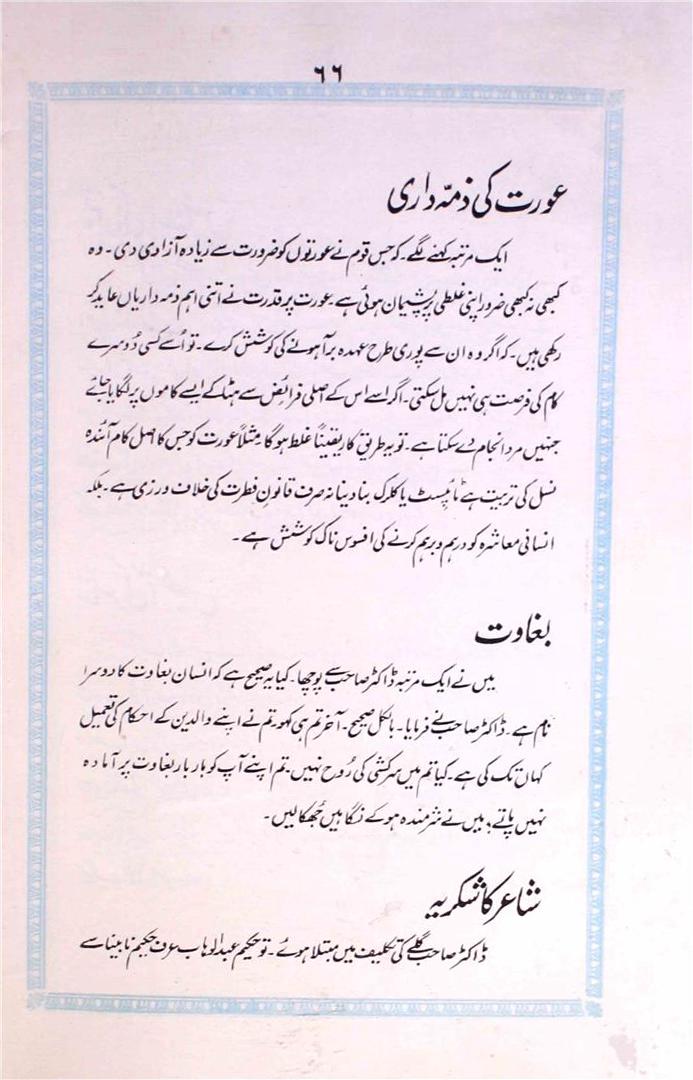 ۶۶
عورت کی ذمہ داری
ایک مرتبہ کہنے لگے۔ کہ جس قوم نے عورتوں کو ضرورت سے زیادہ آزادی دی۔ وہ
کبھی نہ کبھی ضرور اپنی غلطی پر پشیمان ہوئی ہے۔ عورت پر قدرت نے اتنی اہم ذمہ داریاں عاید کر
رکھی ہیں۔ کہ اگر وہ ان سے پوری طرح عہدہ برآ ہونے کی کوشش کرے۔ تو اُسے کسی دُوسرے
کام کی فرصت ہی نہیں مل سکتی۔ اگر اسے اس کے اصلی فرائض سے ہٹا کے ایسے کاموں پر لگایا جائے
جنہیں مرد انجام دے سکتا ہے۔ تو یہ طریق کار یقیناً غلط ہو گا۔ مثلاً عورت کو جس کا اصل کام آئندہ
نسل کی تربیت ہے ٹائپسٹ یا کلرک بنا دینا نہ صرف قانونِ فطرت کی خلاف ورزی ہے۔ بلکہ
انسانی معاشرہ کو درہم و برہم کرنے کی افسوس ناک کوشش ہے۔
بغاوت
میں نے ایک مرتبہ ڈاکٹر صاحب سے پوچھا۔ کیا یہ صحیح ہے کہ انسان بغاوت کا دوسرا
نام ہے۔ ڈاکٹر صاحب نے فرمایا۔ بالکل صحیح۔ آخر تم ہی کہو، تم نے اپنے والدین کے احکام کی تعمیل
کہاں تک کی ہے۔ کیا تم میں سرکشی کی رُوح نہیں۔ تم اپنے آپ کو بار بار بغاوت پر آمادہ
نہیں پاتے؟ میں نے شرمندہ ہو کے نگاہیں جُھکا لیں۔
شاعر کا شکریہ
ڈاکٹر صاحب گلے کی تکلیف میں مبتلا ہوئے۔ تو حکیم عبدالوہاب عرف حکیم نابینا سے